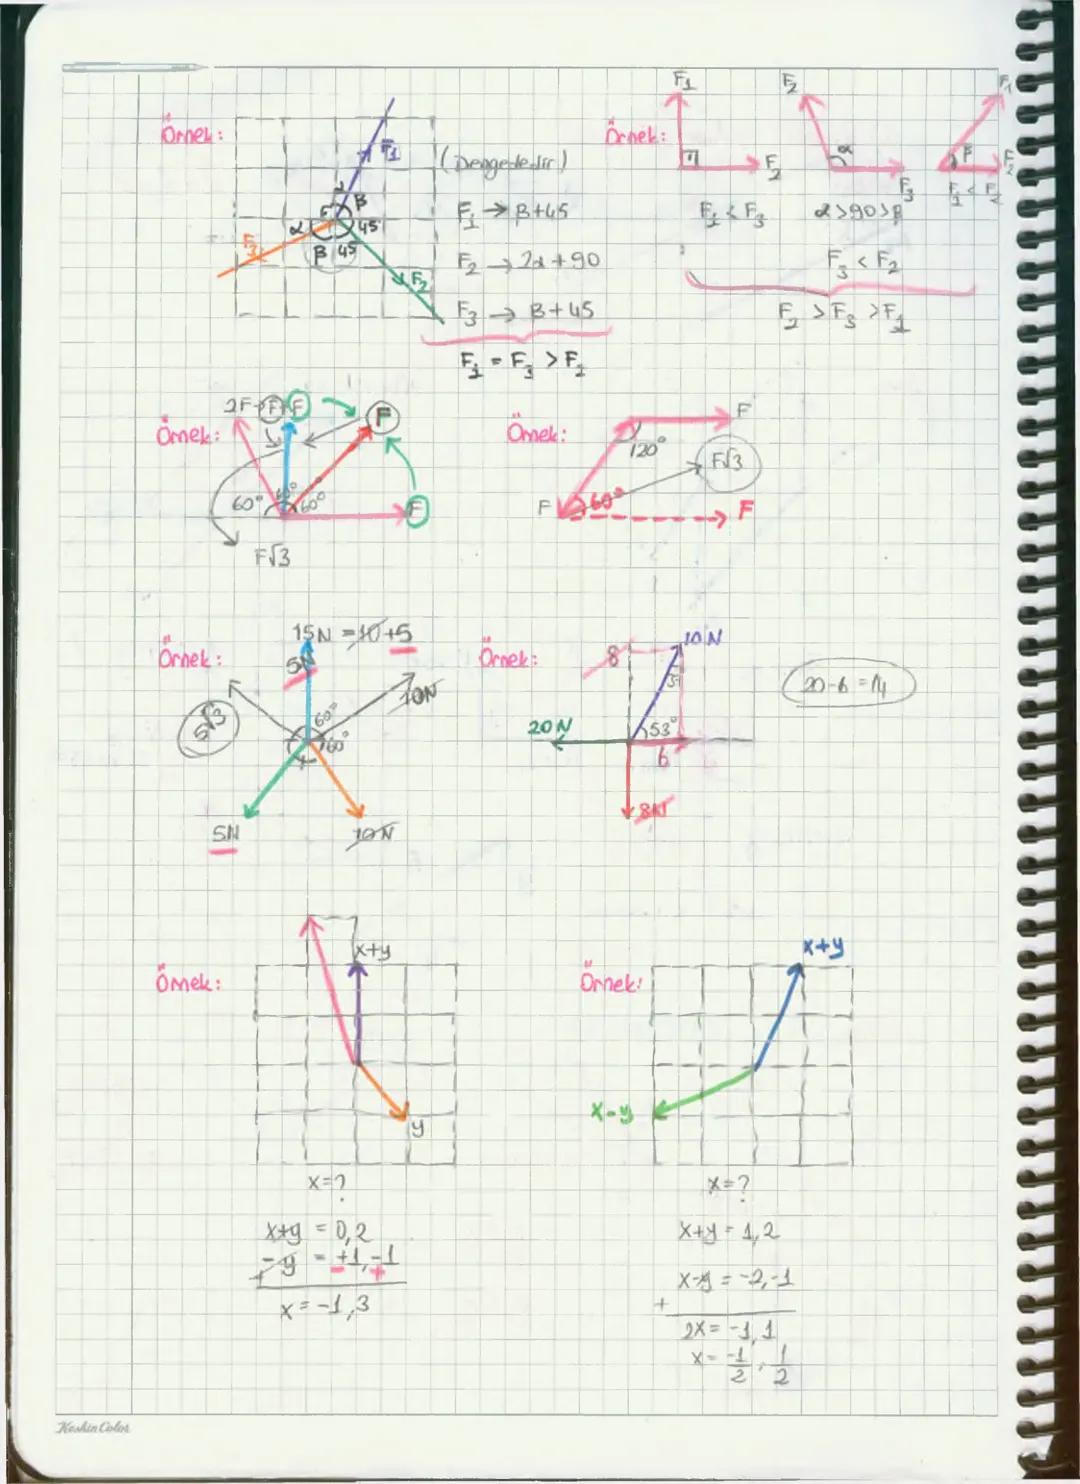 Örnek:
F₁
α
β
45
α
β
45
F₃
F₂
(Dengededir)
F₁ → β+45
F₂ → 2α+90
F₃ → β+45
F₁ = F₃ > F₂
Örnek:
F₁
F₂
F₁ < F₃
F₂
α
F₃
α>90>β
F₃ < F₂
F₁
β
F₂ > F₃ > F₁
Örnek:
F
F
60°
60°
60°
F
F√3
Örnek:
F
120°
F√3
F
60°
F
Örnek:
15N = 10+5
5N
10N
5√3
60°
60°
5N
10N
Örnek:
8
10N
20N
53°
6
8N
20-6=14
Örnek:
x+y
y
x=?
x+y = 0,2
- y = +1,-1
x = -1,3
Örnek:
x+y
x-y
x=?
x+y = 1,2
x-y = -2,-1
+
2x = -1,1
x = -1/2, 1/2
Keskin Color